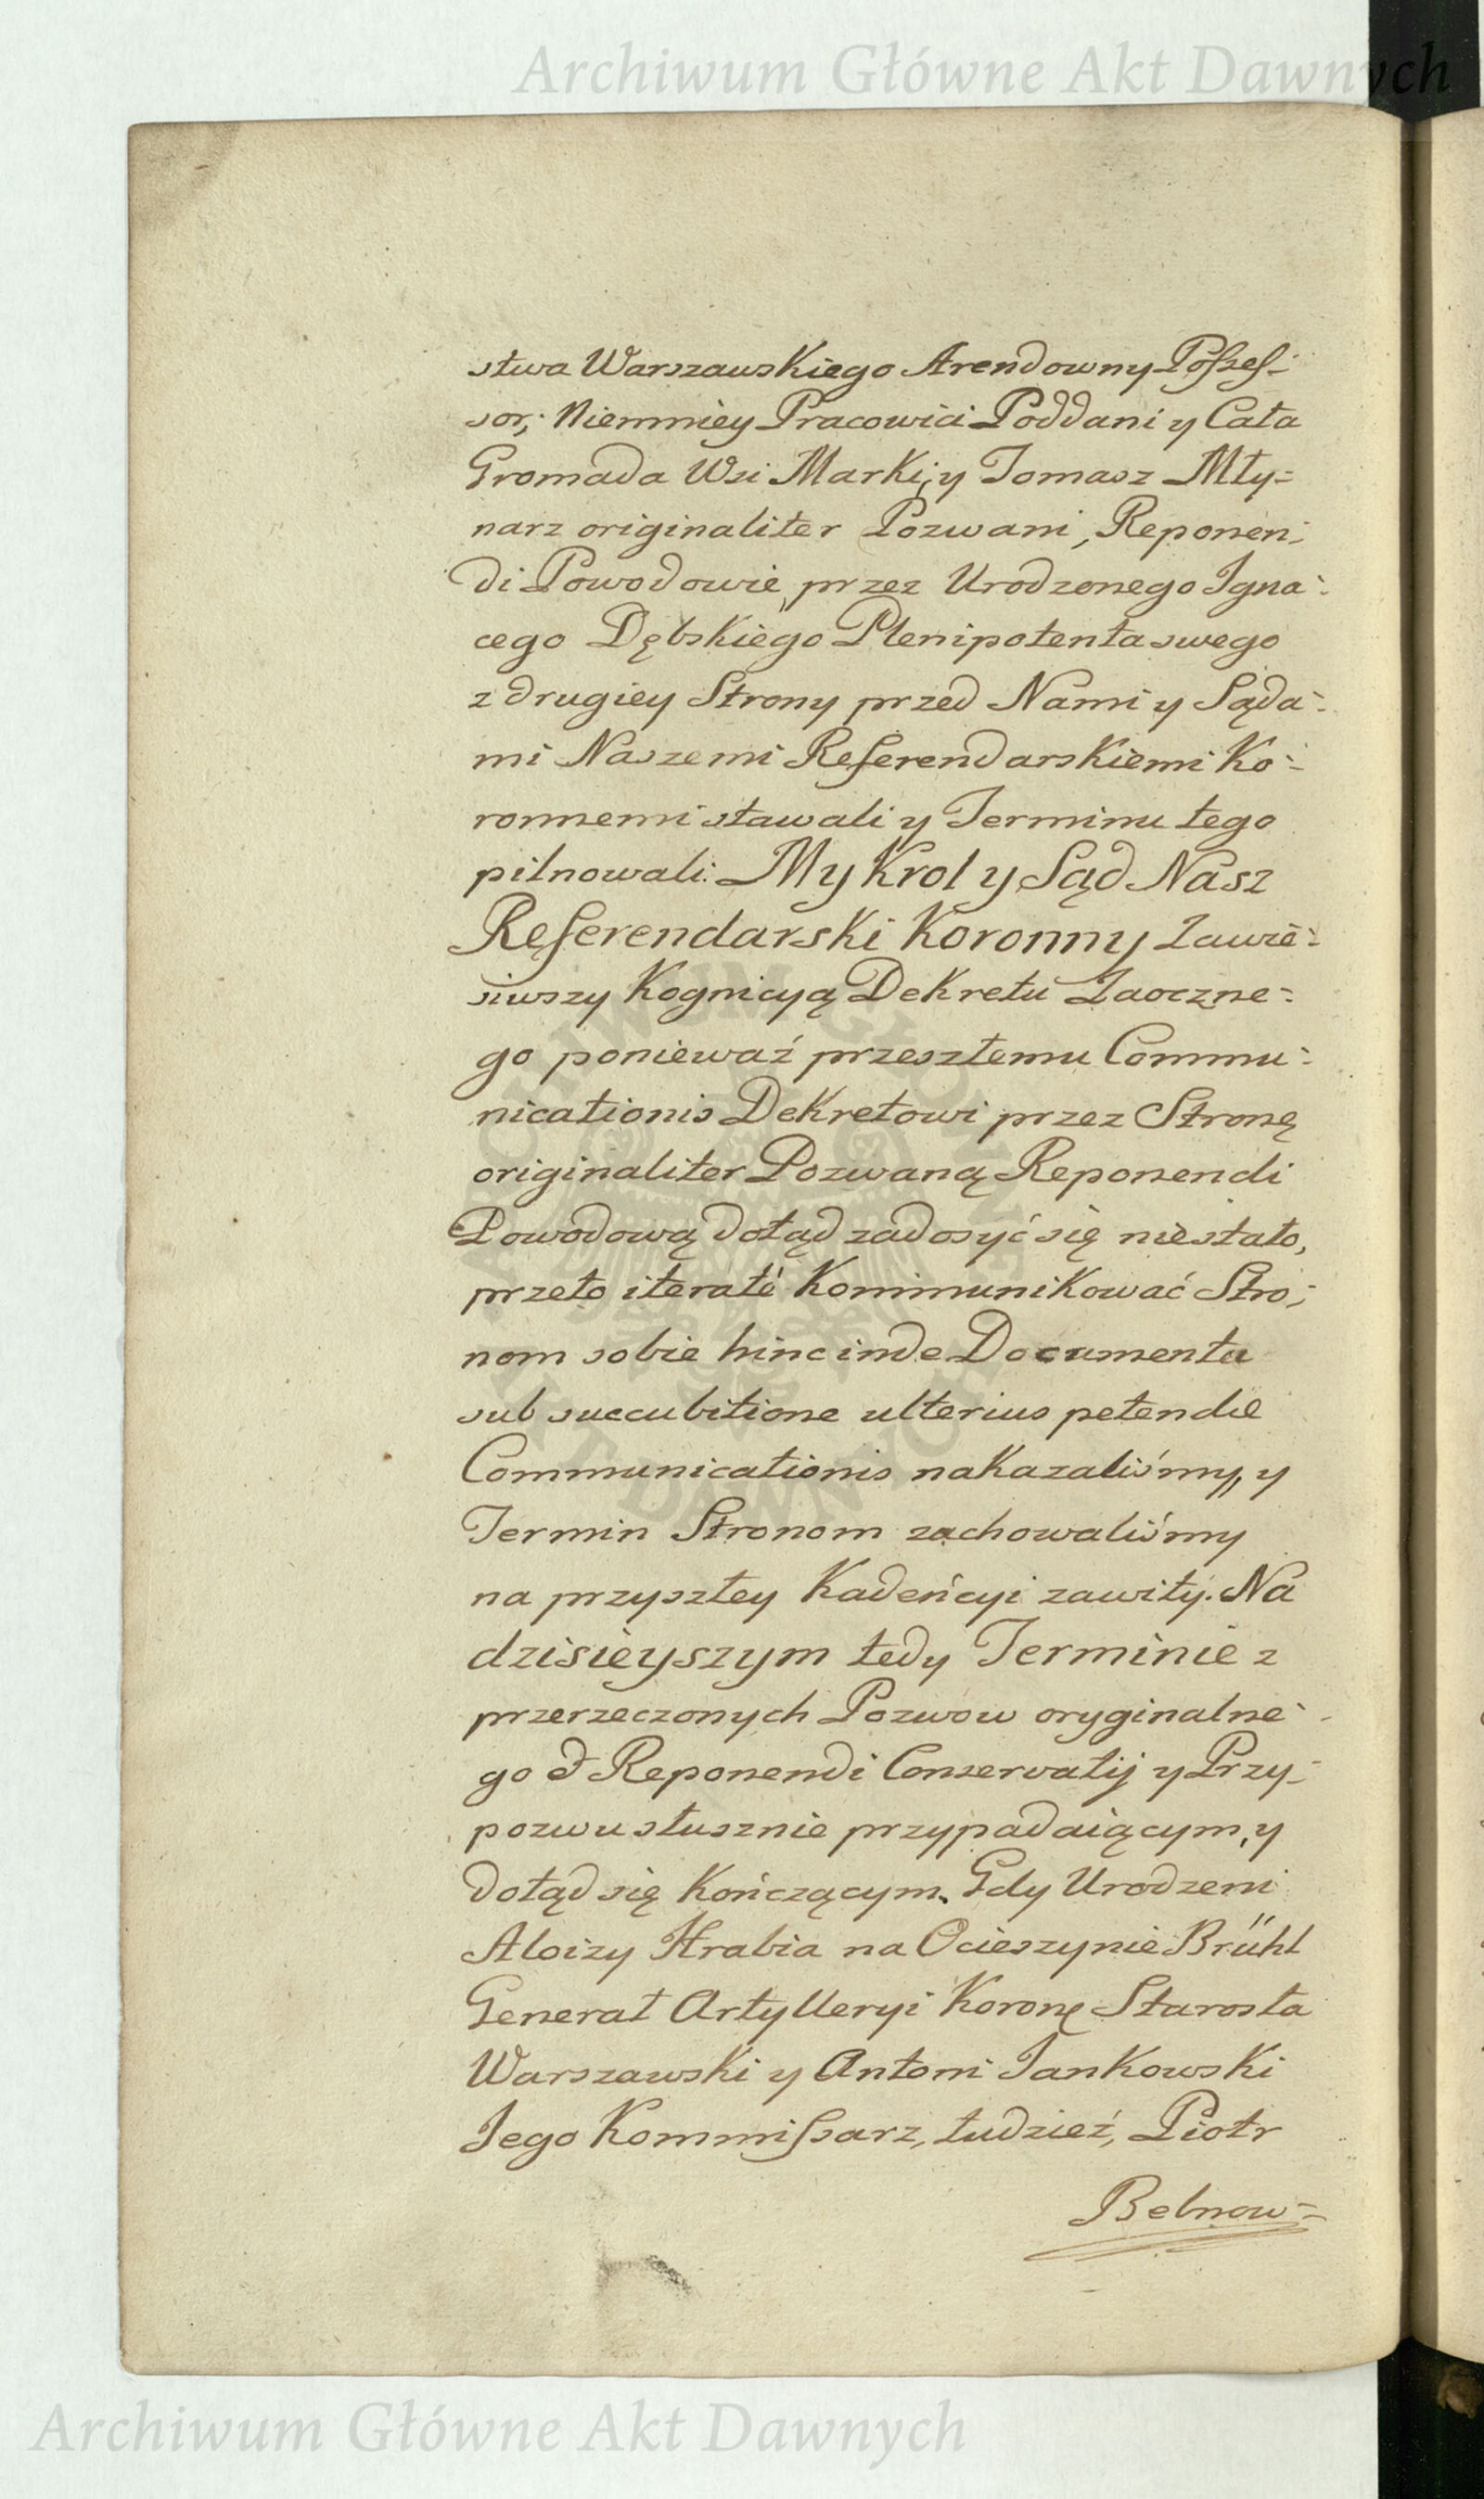 Archiwum Główne Akt Dawnych
stwa Warszawskiego Arendowny Possess-
sor, Niemniey Pracowici Poddani y Cała
Gromada Wsi Marki, y Tomasz Mły=
narz originaliter Pozwani, Reponen-
di Powodowie, przez Urodzonego Igna-
cego Dębskiego Plenipotenta swego
z drugiey Strony przed Nami y Sąda-
mi Naszemi Referendarskiemi Ko-
ronnemi stawali y Terminu tego
pilnowali: My Krol y Sąd Nasz
Referendarski Koronny Zawie-
siwszy Kognicyą Dekretu Zaoczne-
go ponieważ przeszłemu Commu-
nicationis Dekretowi przez Stronę
originaliter Pozwaną Reponendi
Powodową dotąd zadosyć się niestało,
przeto iteratè Kommunikować Stro-
nom sobie hinc inde Documenta
sub succubitione ulterius petendæ
Communicationis nakazaliśmy, y
Termin Stronom zachowaliśmy
na przyszłey Kadeńcyi zawity. Na
dzisieyszym tedy Terminie z
przerzeczonych Pozwow oryginalne-
go & Reponendi Conservatij y Przy-
pozwu słusznie przypadaiącym, y
dotąd się kończącym. Gdy Urodzeni
Aloizy Hrabia na Ocieszynie Brühl
Generał Artylleryi Koronę Starosta
Warszawski y Antoni Jankowski
Jego Kommissarz, tudzież, Piotr
Belnow=
ARCHIWUM GŁÓWNE AKT DAWNYCH
Archiwum Główne Akt Dawnych